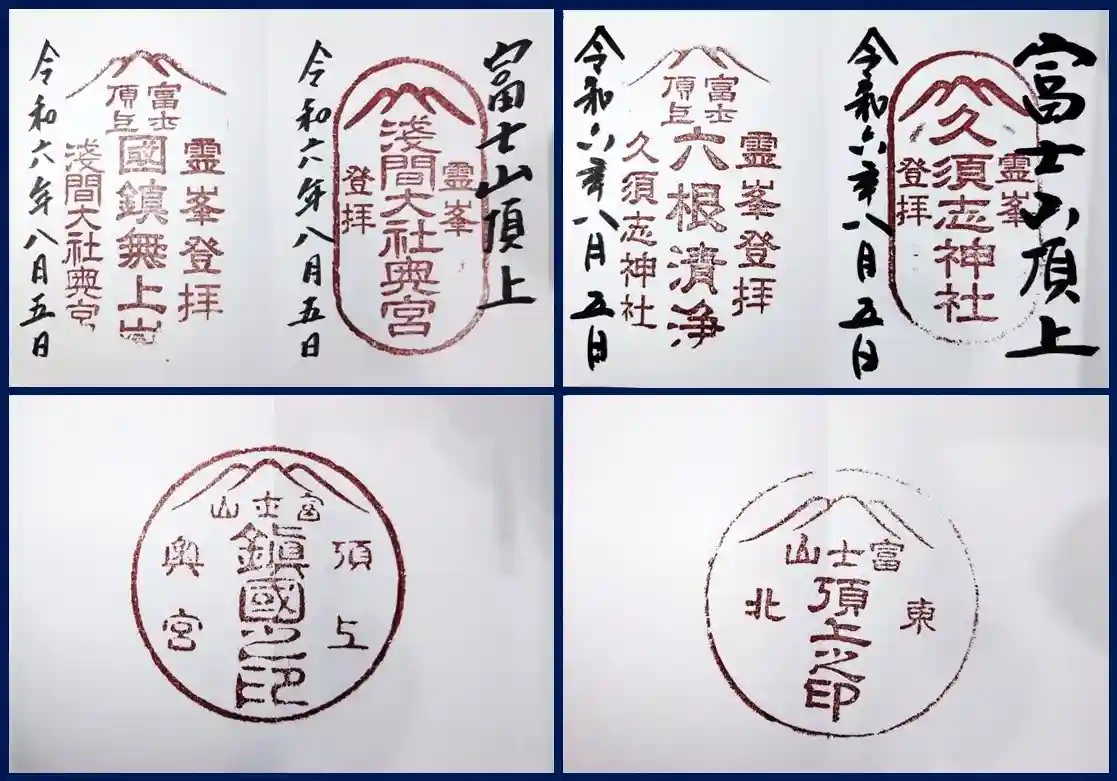 富士山頂上
霊峯
淺間大社奥宮
登拝
令和六年八月五日
富士
頂上
霊峯登拝
國鎮無上嶽
淺間大社奥宮
令和六年八月五日
富士山頂上
霊峯
久須志神社
登拝
令和六年八月五日
富士
頂上
霊峯登拝
六根清浄
久須志神社
令和六年八月五日
富士山
頂上
鎮國之印
奥宮
富士山
東
頂上之印
北